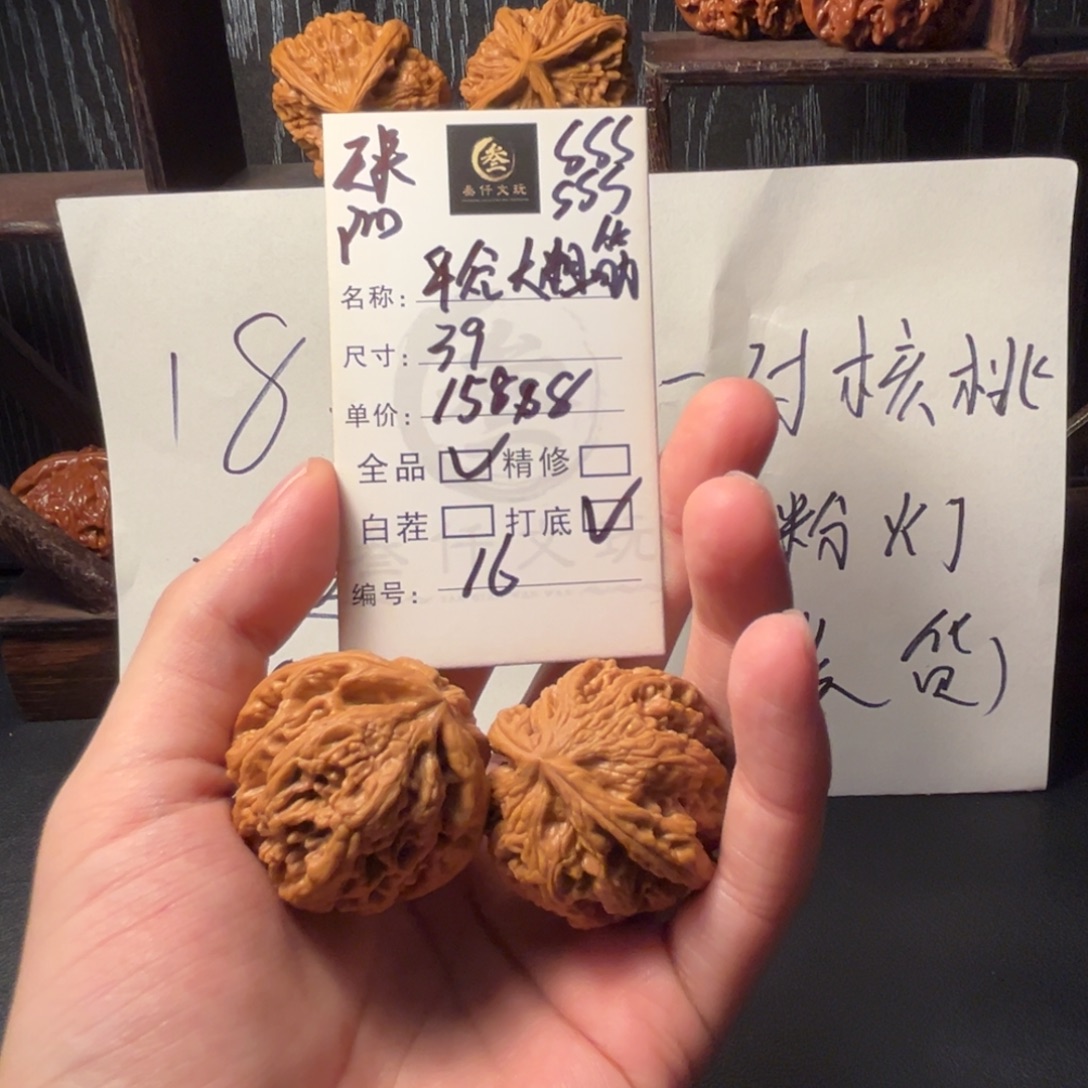 叁
叁仟文玩
SSS
SSS
名称：平谷大粗筋
尺寸：39
单价：15888
全品 精修
白茬 打底
编号：16
18 一对核桃
粉灯
货）